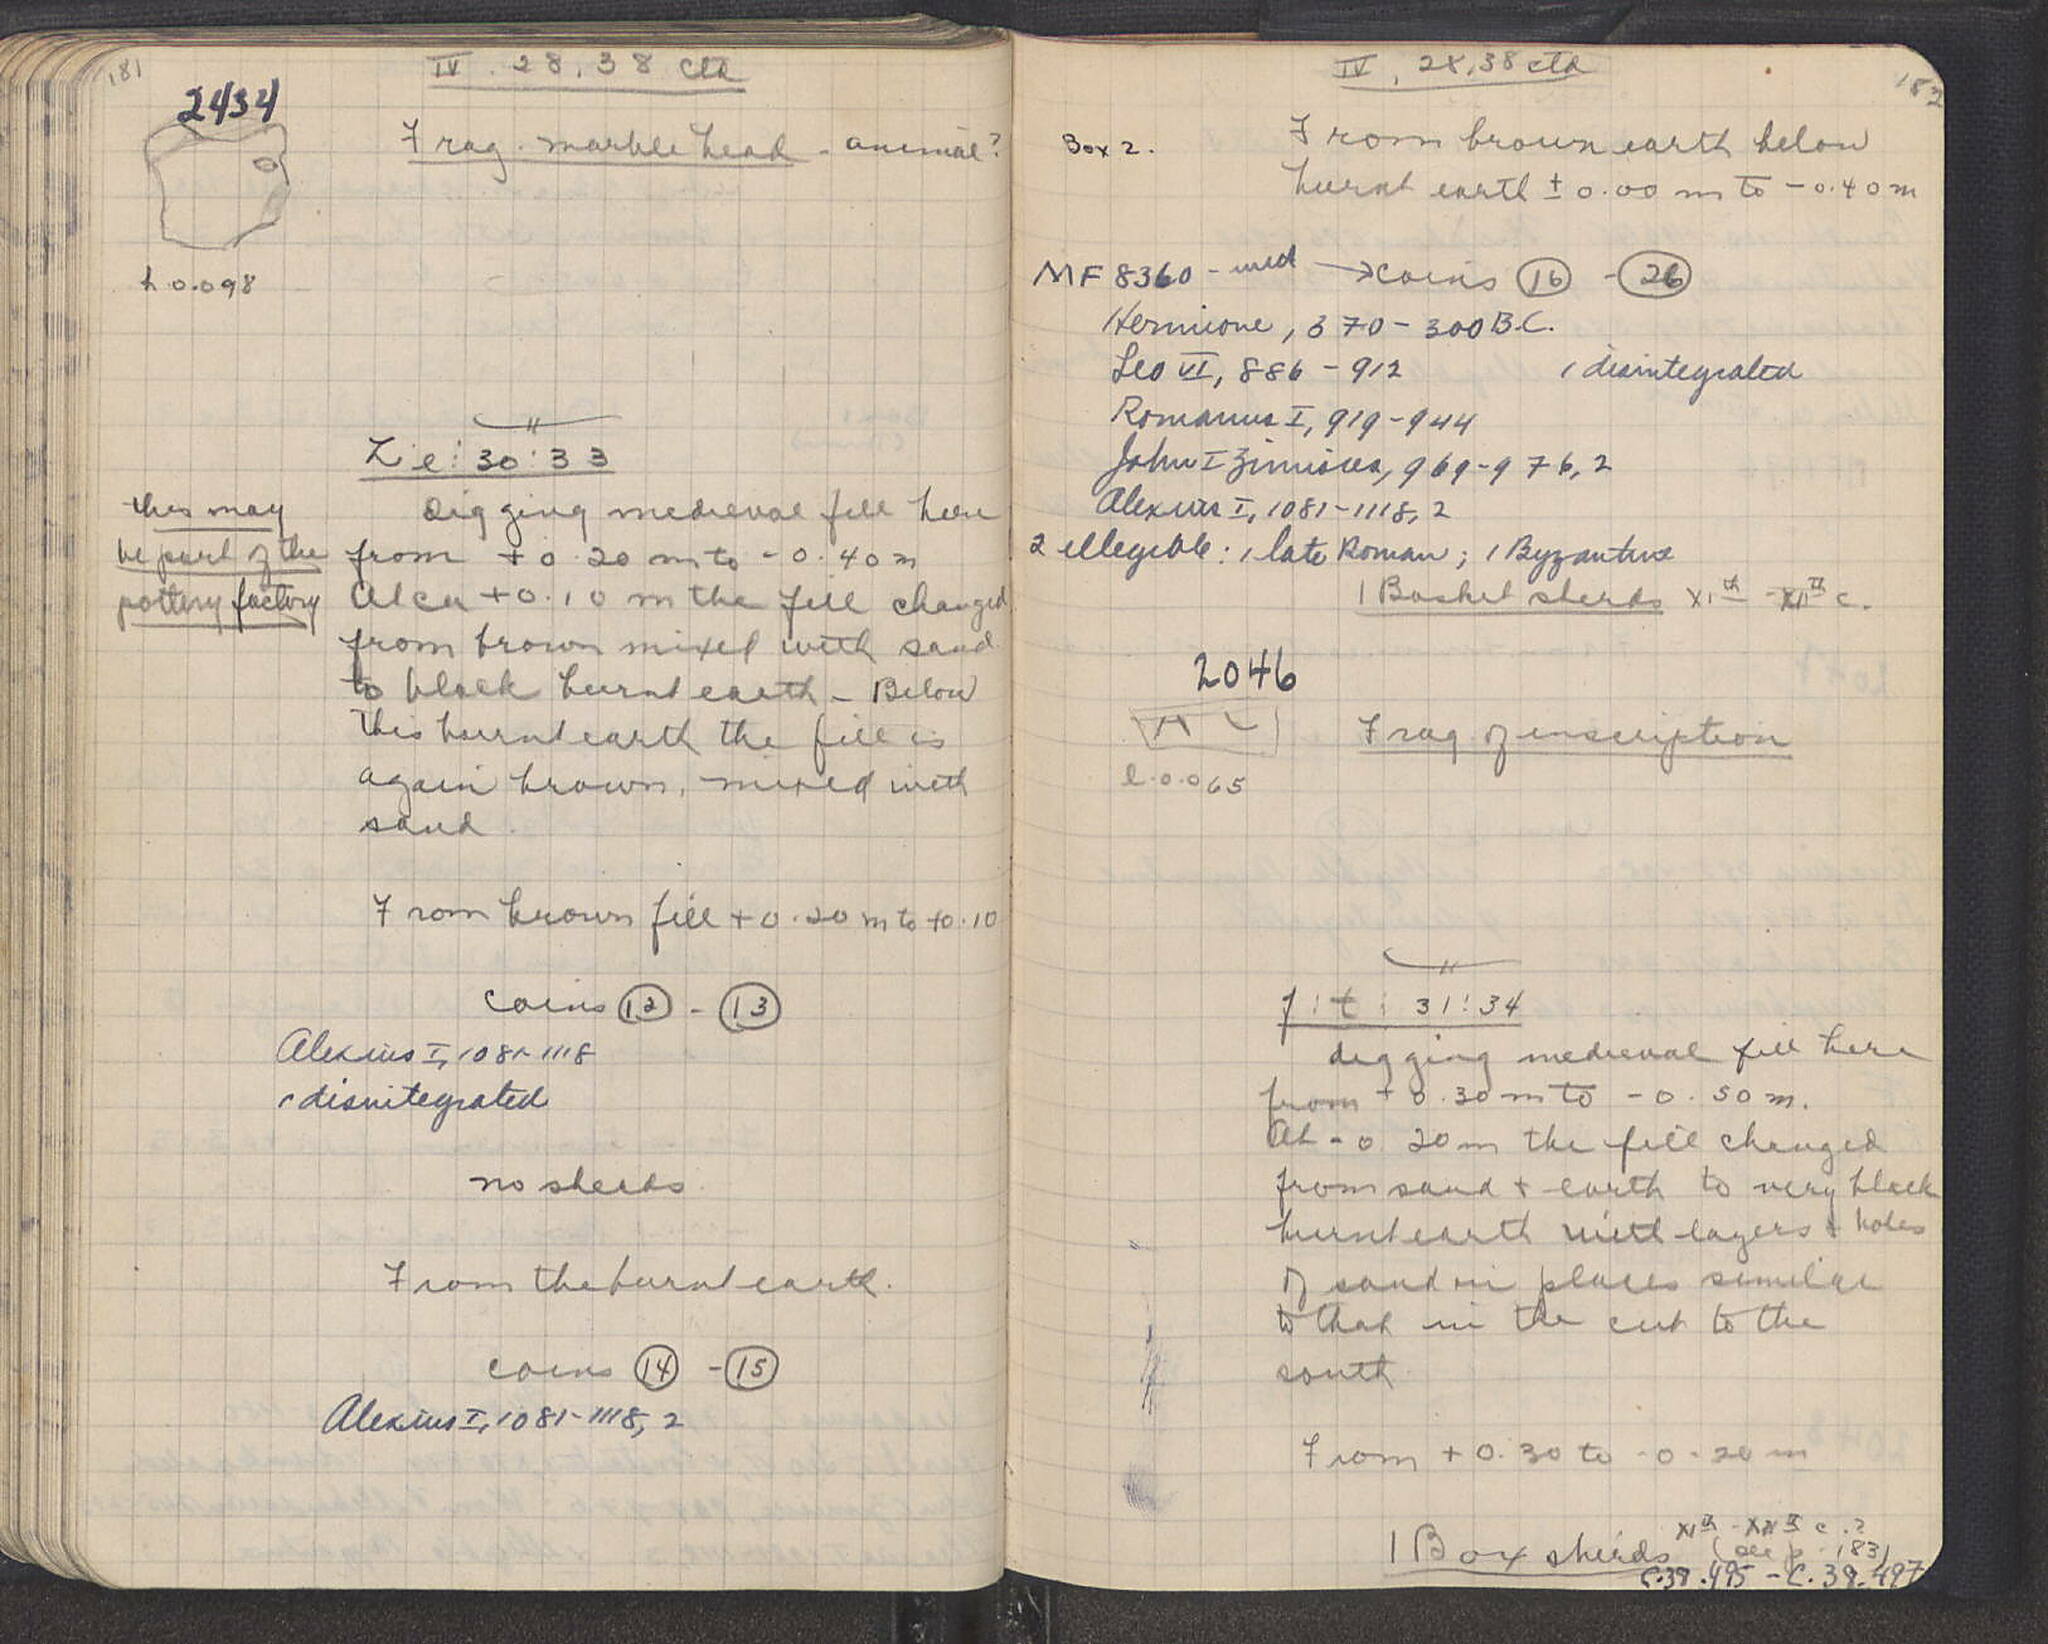 181
IV . 28, 38 ctd
2434
Frag. marble head - animal?
h 0.098
"
Z e : 30 : 33
this may
be part of the
pottery factory
Digging medieval fill here
from +0.20 m to -0.40 m
At ca +0.10 m the fill changed
from brown mixed with sand
to black burnt earth - Below
this burnt earth the fill is
again brown, mixed with
sand.
From brown fill +0.20 m to +0.10
coins 12 - 13
Alexius I, 1081-1118
1 disintegrated
no sherds
From the burnt earth.
coins 14 - 15
Alexius I, 1081-1118, 2
182
IV, 28, 38 ctd
Box 2.
From brown earth below
burnt earth ± 0.00 m to -0.40 m
MF 8360 - med → coins 16 - 26
Hermione, 370-300 B.C.
Leo VI, 886-912 1 disintegrated
Romanus I, 919-944
John I Zimisces, 969-976, 2
Alexius I, 1081-1118, 2
2 illegible: 1 late Roman; 1 Byzantine
1 Basket sherds XIth - XIIth c.
2046
l. 0.065
Frag of inscription
"
: 31 : 34
digging medieval fill here
from +0.30 m to -0.50 m.
At -0.20 m the fill changed
from sand + earth to very black
burnt earth with layers + holes
of sand in places similar
to that in the cut to the
south
From +0.30 to -0.20 m
1 Box sherds XIth - XIIth c.?
(see p. 183)
C.39.495 - C.39.497